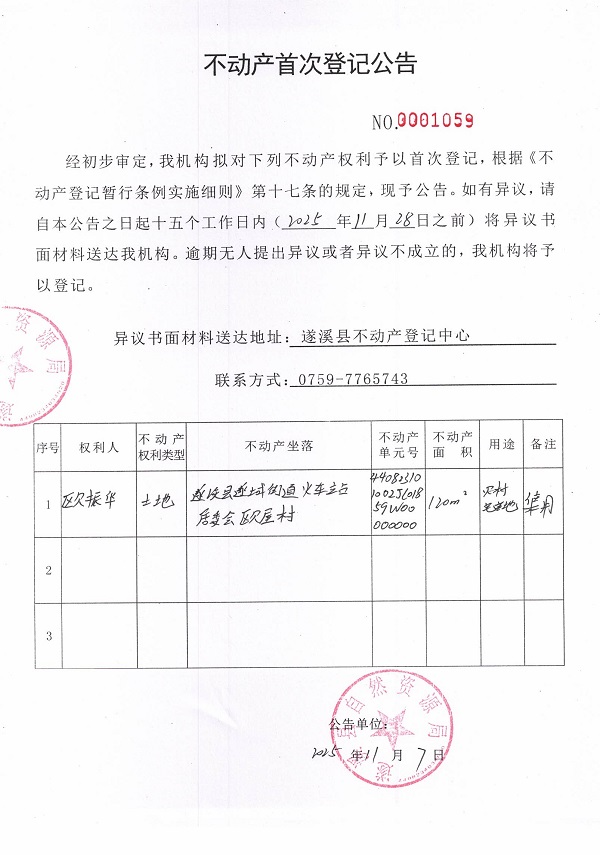 不动产首次登记公告
NO.0001059
经初步审定，我机构拟对下列不动产权利予以首次登记，根据《不
动产登记暂行条例实施细则》第十七条的规定，现予公告。如有异议，请
自本公告之日起十五个工作日内（2025年11月28日之前）将异议书
面材料送达我机构。逾期无人提出异议或者异议不成立的，我机构将予
以登记。
异议书面材料送达地址：遂溪县不动产登记中心
联系方式：0759-7765743
序号 权利人 不动产权利类型 不动产坐落 不动产单元号 不动产面积 用途 备注
1 欧振华 土地 遂溪县遂城街道火车站
居委会欧屋村
44082310
1002JC018
59W00
000000
120m² 农村
宅基地
2
3
公告单位：
2025年11月7日
遂溪县自然资源局
资源局
遂